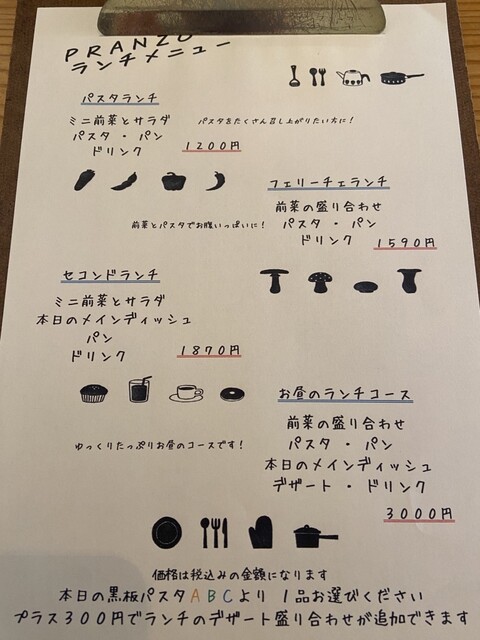 PRANZO
ランチメニュー
パスタランチ
ミニ前菜とサラダ
パスタ ・ パン
ドリンク
1200円
パスタをたくさん召し上がりたい方に！
フェリーチェランチ
前菜の盛り合わせ
パスタ ・ パン
ドリンク
1590円
前菜とパスタでお腹いっぱいに！
セコンドランチ
ミニ前菜とサラダ
本日のメインディッシュ
パン
ドリンク
1870円
お昼のランチコース
前菜の盛り合わせ
パスタ ・ パン
本日のメインディッシュ
デザート ・ ドリンク
3000円
ゆっくりたっぷりお昼のコースです！
価格は税込みの金額になります
本日の黒板パスタABCより 1品お選びください
プラス300円でランチのデザート盛り合わせが追加できます